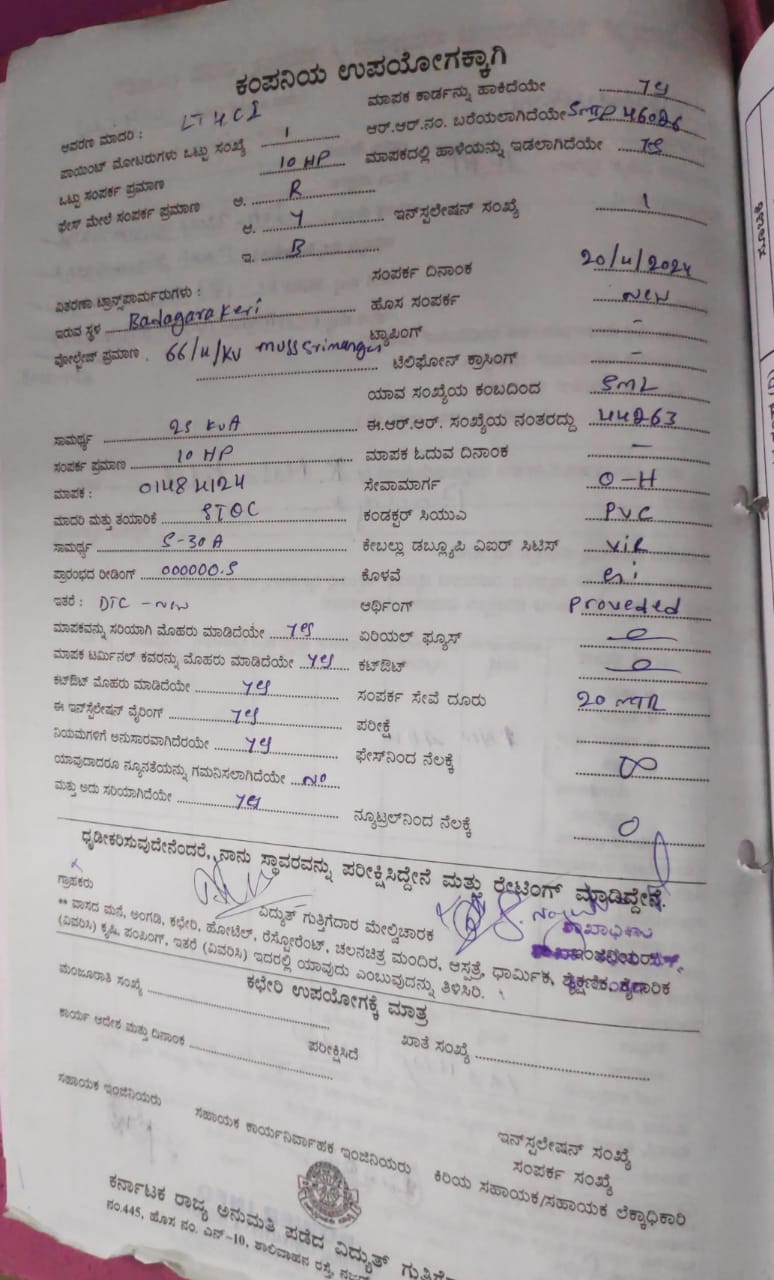 ಕಂಪನಿಯ ಉಪಯೋಗಕ್ಕಾಗಿ
ಆವರಣ ಮಾದರಿ : LT4CI
ಮಾಪಕ ಕಾರ್ಡನ್ನು ಹಾಕಿದೆಯೇ
ಪಾಯಿಂಟ್ ಮೋಟರುಗಳು ಒಟ್ಟು ಸಂಖ್ಯೆ 1
ಆರ್.ಆರ್.ನಂ. ಬರೆಯಲಾಗಿದೆಯೇ
ಒಟ್ಟು ಸಂಪರ್ಕ ಪ್ರಮಾಣ 10 HP
ಮಾಪಕದಲ್ಲಿ ಹಾಳೆಯನ್ನು ಇಡಲಾಗಿದೆಯೇ
ಫೇಸ್ ಮೇಲೆ ಸಂಪರ್ಕ ಪ್ರಮಾಣ ಅ. R
ಆ. Y ಇನ್‌ಸ್ಟಲೇಷನ್ ಸಂಖ್ಯೆ 1
ಇ. B
ಸಂಪರ್ಕ ದಿನಾಂಕ 20/4/2024
ವಿತರಣಾ ಟ್ರಾನ್ಸ್‌ಪಾರ್ಮರುಗಳು :
ಹೊಸ ಸಂಪರ್ಕ New
ಇರುವ ಸ್ಥಳ Badagarakeri
ಟ್ಯಾಪಿಂಗ್ -
ವೋಲ್ಟೇಜ್ ಪ್ರಮಾಣ . 66/11/KV MUSS Srimangal
ಟೆಲಿಫೋನ್ ಕ್ರಾಸಿಂಗ್ -
ಯಾವ ಸಂಖ್ಯೆಯ ಕಂಬದಿಂದ SML
ಸಾಮರ್ಥ್ಯ 25 KVA
ಈ.ಆರ್.ಆರ್. ಸಂಖ್ಯೆಯ ನಂತರದ್ದು 44263
ಸಂಪರ್ಕ ಪ್ರಮಾಣ 10 HP
ಮಾಪಕ ಓದುವ ದಿನಾಂಕ -
ಮಾಪಕ : 01484124
ಸೇವಾಮಾರ್ಗ O-H
ಮಾದರಿ ಮತ್ತು ತಯಾರಿಕೆ STOC
ಕಂಡಕ್ಟರ್ ಸಿಯುಎ PVC
ಸಾಮರ್ಥ್ಯ 5-30A
ಕೇಬಲ್ಲು ಡಬ್ಲ್ಯೂಪಿ ವಿಐರ್ ಸಿಟಿಸ್ VIR
ಪ್ರಾರಂಭದ ರೀಡಿಂಗ್ 000000.5
ಕೊಳವೆ GI
ಇತರೆ : DTC - New
ಆರ್ಥಿಂಗ್ Proveded
ಮಾಪಕವನ್ನು ಸರಿಯಾಗಿ ಮೊಹರು ಮಾಡಿದೆಯೇ yes
ಏರಿಯಲ್ ಫ್ಯೂಸ್
ಮಾಪಕ ಟರ್ಮಿನಲ್ ಕವರನ್ನು ಮೊಹರು ಮಾಡಿದೆಯೇ yes
ಕಟ್‌ಔಟ್
ಕಟ್‌ಔಟ್ ಮೊಹರು ಮಾಡಿದೆಯೇ yes
ಸಂಪರ್ಕ ಸೇವೆ ದೂರು 20 MTR
ಈ ಇನ್‌ಸ್ಟೆಲೇಷನ್ ವೈರಿಂಗ್ yes
ಪರೀಕ್ಷೆ
ನಿಯಮಗಳಿಗೆ ಅನುಸಾರವಾಗಿದೆರಯೇ yes
ಫೇಸ್‌ನಿಂದ ನೆಲಕ್ಕೆ ∞
ಯಾವುದಾದರೂ ನ್ಯೂನತೆಯನ್ನು ಗಮನಿಸಲಾಗಿದೆಯೇ No
ಮತ್ತು ಅದು ಸರಿಯಾಗಿದೆಯೇ yes
ನ್ಯೂಟ್ರಲ್‌ನಿಂದ ನೆಲಕ್ಕೆ 0
ಧೃಡೀಕರಿಸುವುದೇನೆಂದರೆ, ನಾನು ಸ್ಥಾವರವನ್ನು ಪರೀಕ್ಷಿಸಿದ್ದೇನೆ ಮತ್ತು ರೇಟಿಂಗ್ ಮಾಡಿದ್ದೇನೆ.
ಗ್ರಾಹಕರು ವಿದ್ಯುತ್ ಗುತ್ತಿಗೆದಾರ ಮೇಲ್ವಿಚಾರಕ
** ವಾಸದ ಮನೆ, ಅಂಗಡಿ, ಕಛೇರಿ, ಹೋಟೆಲ್, ರೆಸ್ಟೋರೆಂಟ್, ಚಲನಚಿತ್ರ ಮಂದಿರ, ಆಸ್ಪತ್ರೆ, ಧಾರ್ಮಿಕ, ಶೈಕ್ಷಣಿಕ,
(ವಿವರಿಸಿ) ಕೃಷಿ, ಪಂಪಿಂಗ್, ಇತರೆ (ವಿವರಿಸಿ) ಇದರಲ್ಲಿ ಯಾವುದು ಎಂಬುವುದನ್ನು ತಿಳಿಸಿರಿ.
ಕಛೇರಿ ಉಪಯೋಗಕ್ಕೆ ಮಾತ್ರ
ಮಂಜೂರಾತಿ ಸಂಖ್ಯೆ
ಖಾತೆ ಸಂಖ್ಯೆ
ಕಾರ್ಯ ಆದೇಶ ಮತ್ತು ದಿನಾಂಕ
ಪರೀಕ್ಷಿಸಿದೆ
ಸಹಾಯಕ ಇಂಜಿನಿಯರು
ಸಹಾಯಕ ಕಾರ್ಯನಿರ್ವಾಹಕ ಇಂಜಿನಿಯರು
ಇನ್‌ಸ್ಟಲೇಷನ್ ಸಂಖ್ಯೆ
ಸಂಪರ್ಕ ಸಂಖ್ಯೆ
ಕಿರಿಯ ಸಹಾಯಕ/ಸಹಾಯಕ ಲೆಕ್ಕಾಧಿಕಾರಿ
ಕರ್ನಾಟಕ ರಾಜ್ಯ ಅನುಮತಿ ಪಡೆದ ವಿದ್ಯುತ್
ನಂ.445, ಹೊಸ ನಂ. ಎನ್-10, ಶಾಲಿವಾಹನ ರಸ್ತೆ,